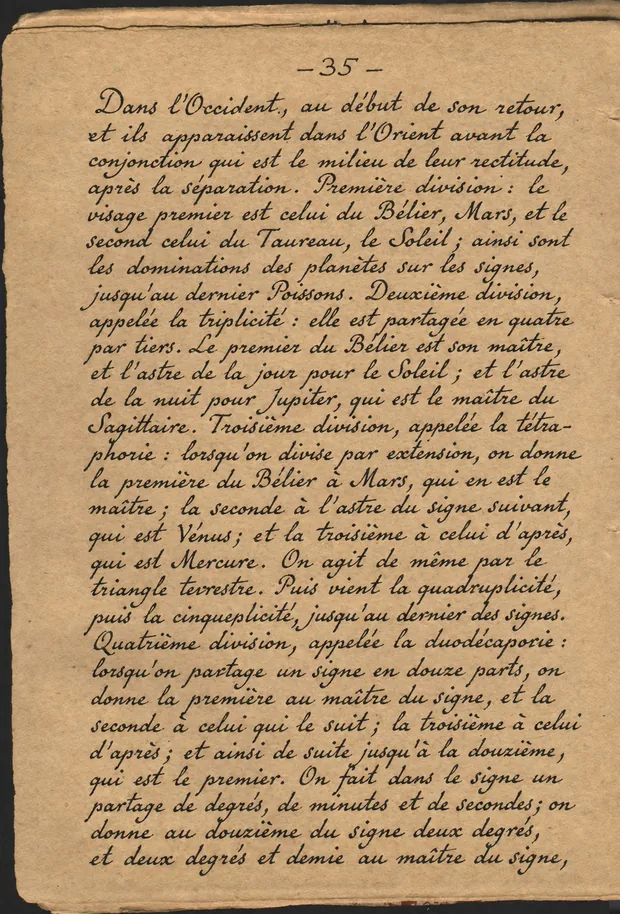 – 35 –
Dans l'Occident, au début de son retour,
et ils apparaissent dans l'Orient avant la
conjonction qui est le milieu de leur rectitude,
après la séparation. Première division : le
visage premier est celui du Bélier, Mars, et le
second celui du Taureau, le Soleil ; ainsi sont
les dominations des planètes sur les signes,
jusqu'au dernier Poissons. Deuxième division,
appelée la triplicité : elle est partagée en quatre
par tiers. Le premier du Bélier est son maître,
et l'astre de la jour pour le Soleil ; et l'astre
de la nuit pour Jupiter, qui est le maître du
Sagittaire. Troisième division, appelée la tétra-
phorie : lorsqu'on divise par extension, on donne
la première du Bélier à Mars, qui en est le
maître ; la seconde à l'astre du signe suivant,
qui est Vénus ; et la troisième à celui d'après,
qui est Mercure. On agit de même par le
triangle terrestre. Puis vient la quadruplicité,
puis la cinqueplicité, jusqu'au dernier des signes.
Quatrième division, appelée la duodécaporie :
lorsqu'on partage un signe en douze parts, on
donne la première au maître du signe, et la
seconde à celui qui le suit ; la troisième à celui
d'après ; et ainsi de suite jusqu'à la douzième,
qui est le premier. On fait dans le signe un
partage de degrés, de minutes et de secondes ; on
donne au douzième du signe deux degrés,
et deux degrés et demie au maître du signe,